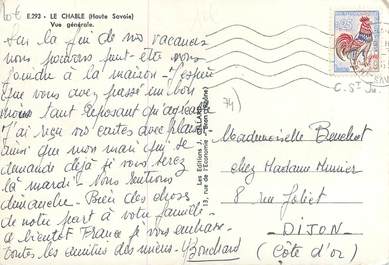 10€
E.293 - LE CHABLE (Haute Savoie)
Vue générale.
Sur la fin de nos vacances
nous pouvons peut-être nous
joindre à la maison. J'espère
que vous avez passé un bon
mois tant reposant qu'agréable
J'ai reçu vos cartes avec plaisir
ainsi que mon mari qui se
demande déjà si vous serez
là mardi. Nous rentrons
dimanche. Bien des choses
de notre part à votre famille.
à bientôt France je vous embrasse
toutes les amitiés des miens. Bouchard
Les Editions J. CELLARD
13, rue de l'Economie - Bron (Rhône)
74)
Mademoiselle Bouchut
chez Madame Munier
8 rue Joliet
DIJON
(Côte d'or)